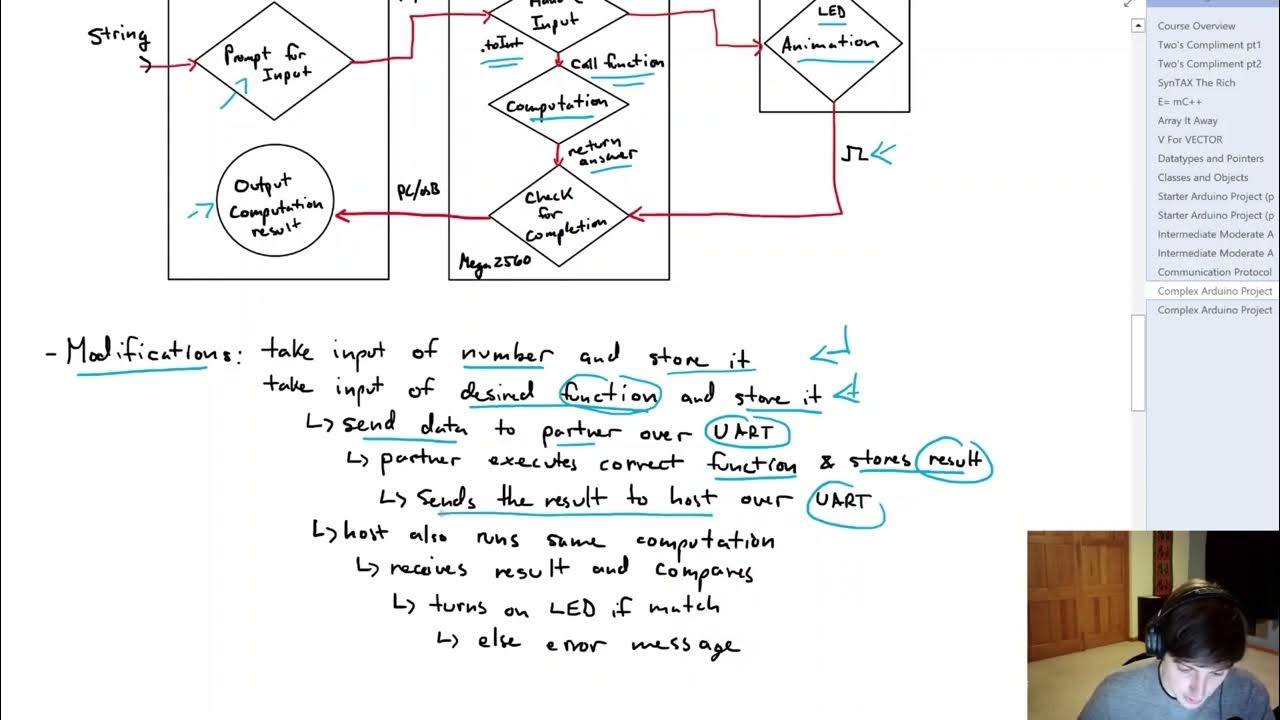 String
Prompt for
Input
Output
Computation
result
PC/USB
Input
.toInt
Call function
Computation
return
answer
Check
for
Completion
Mega2560
LED
Animation
- Modifications: take input of number and store it
take input of desired function and store it
↳ send data to partner over UART
↳ partner executes correct function & stores result
↳ sends the result to host over UART
↳ host also runs same computation
↳ receives result and compares
↳ turns on LED if match
↳ else error message
Course Overview
Two's Compliment pt1
Two's Compliment pt2
SynTAX The Rich
E= mC++
Array It Away
V For VECTOR
Datatypes and Pointers
Classes and Objects
Starter Arduino Project (p
Starter Arduino Project (p
Intermediate Moderate A
Intermediate Moderate A
Communication Protocol
Complex Arduino Project
Complex Arduino Project